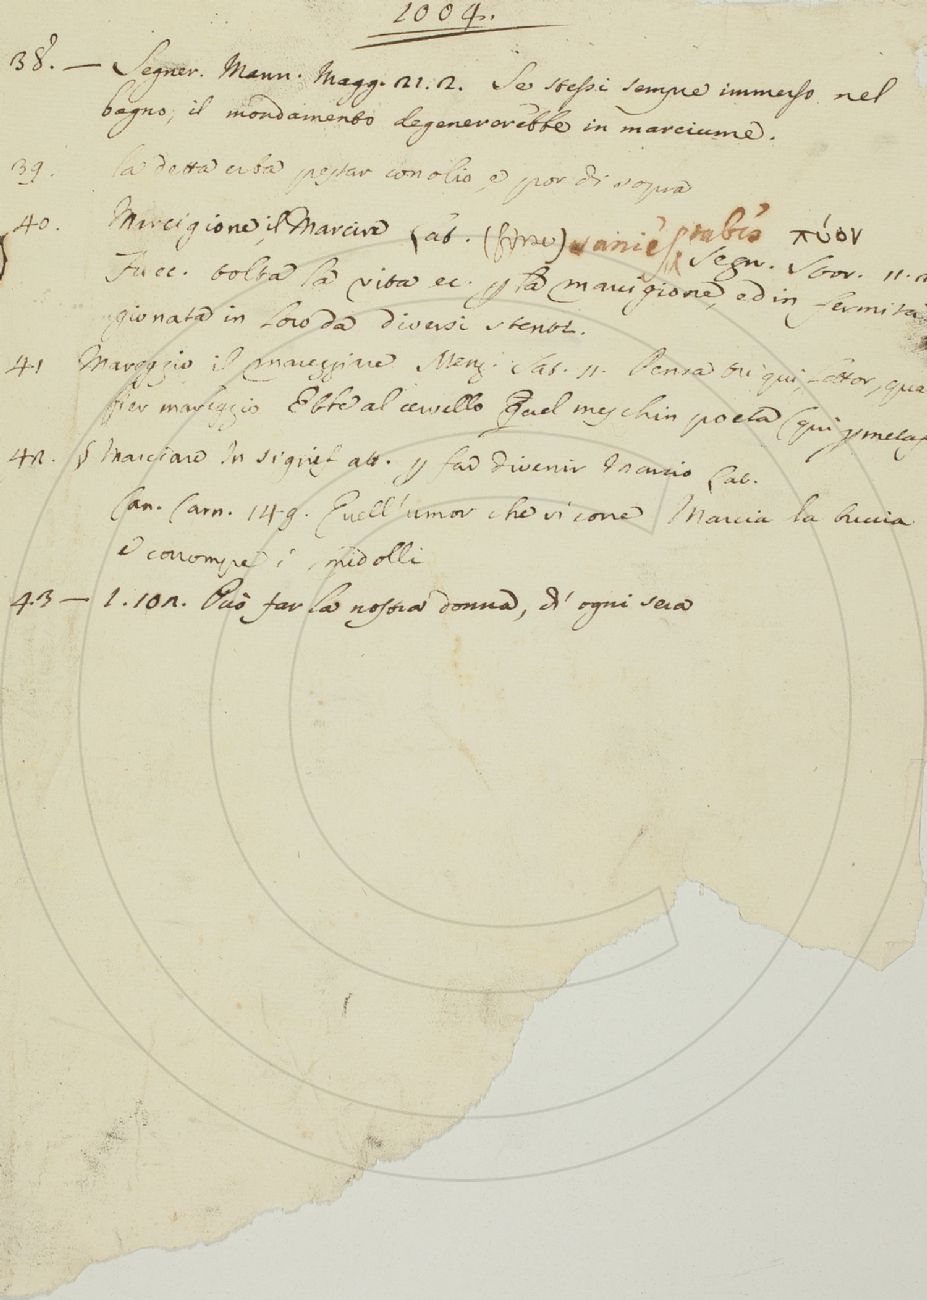 1004.
38. — Segner. Mann. Magg. 21. 2. Se stessi sempre immerso nel
bagno, il mondamento degenererebbe in marciume.
39. la detta erba pestar con olio, e por di sopra
40. Marcigione, il Marcire Lat. (forse) sanies, tabes πύον
Segn. Stor. 11.
Fu ec. tolta la vita ec. la marcigione, ed in fermità
gionata in loro da diversi stenti.
41 Mareggio il mareggiare Menz. Sat. 11. Pensa tu qui Lettor, qua
fier mareggio Ebbe al cervello Quel meschin poeta (qui p metaf
42. § Marciare In signif att. p far divenir marcio Lat.
Can. Carn. 149. Quell'umor che vi corre Marcia la buccia
e corrompe i midolli
43 — 1. 102. Può far la nostra donna, ch' ogni sera